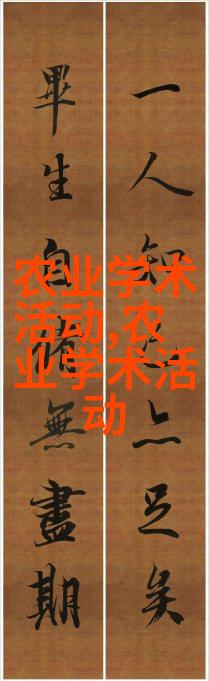 农业学术
活动,农
业学术活
动
一人知己亦足矣
畢生自脩無盡期